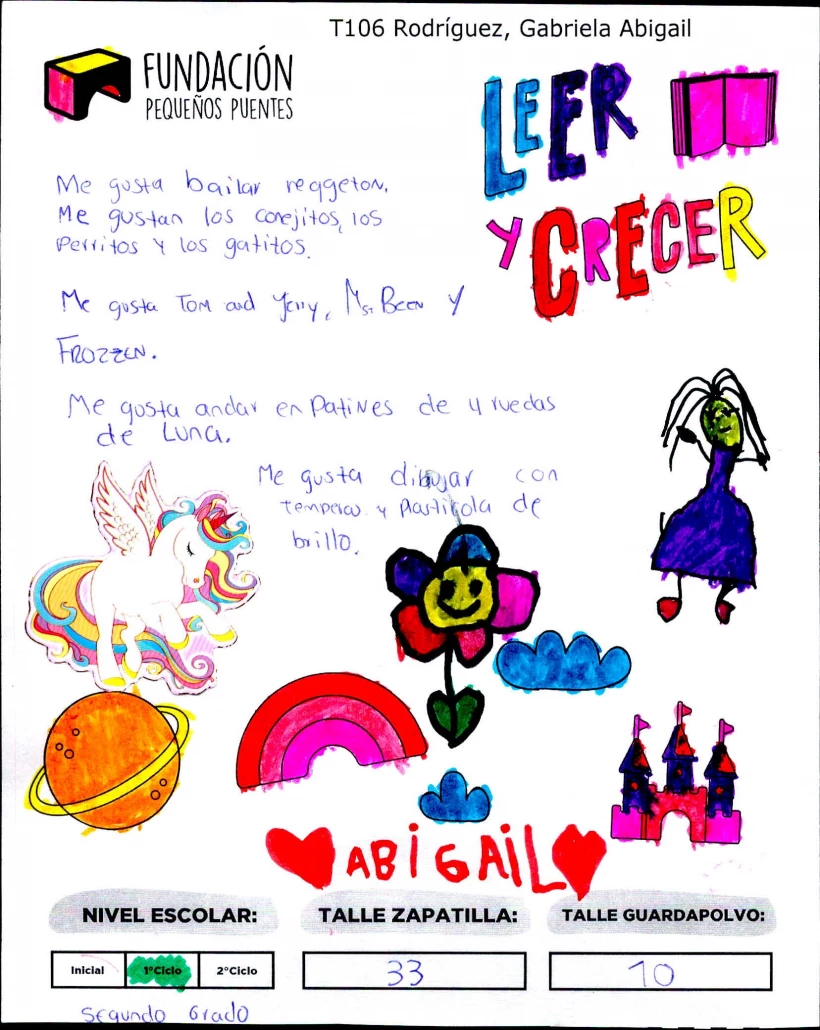 T106 Rodríguez, Gabriela Abigail
FUNDACIÓN
PEQUEÑOS PUENTES
LEER
Y CRECER
Me gusta bailar reggeton.
Me gustan los conejitos, los
Perritos y los gatitos.
Me gusta Tom and Jerry, Mr. Been y
FROZZEN.
Me gusta andar en Patines de 4 ruedas
de Luna.
Me gusta dibujar con
temperas y Plasticola de
brillo.
ABiGAiL
NIVEL ESCOLAR:
TALLE ZAPATILLA:
TALLE GUARDAPOLVO:
Inicial 1°Ciclo 2°Ciclo
33
10
Segundo Grado